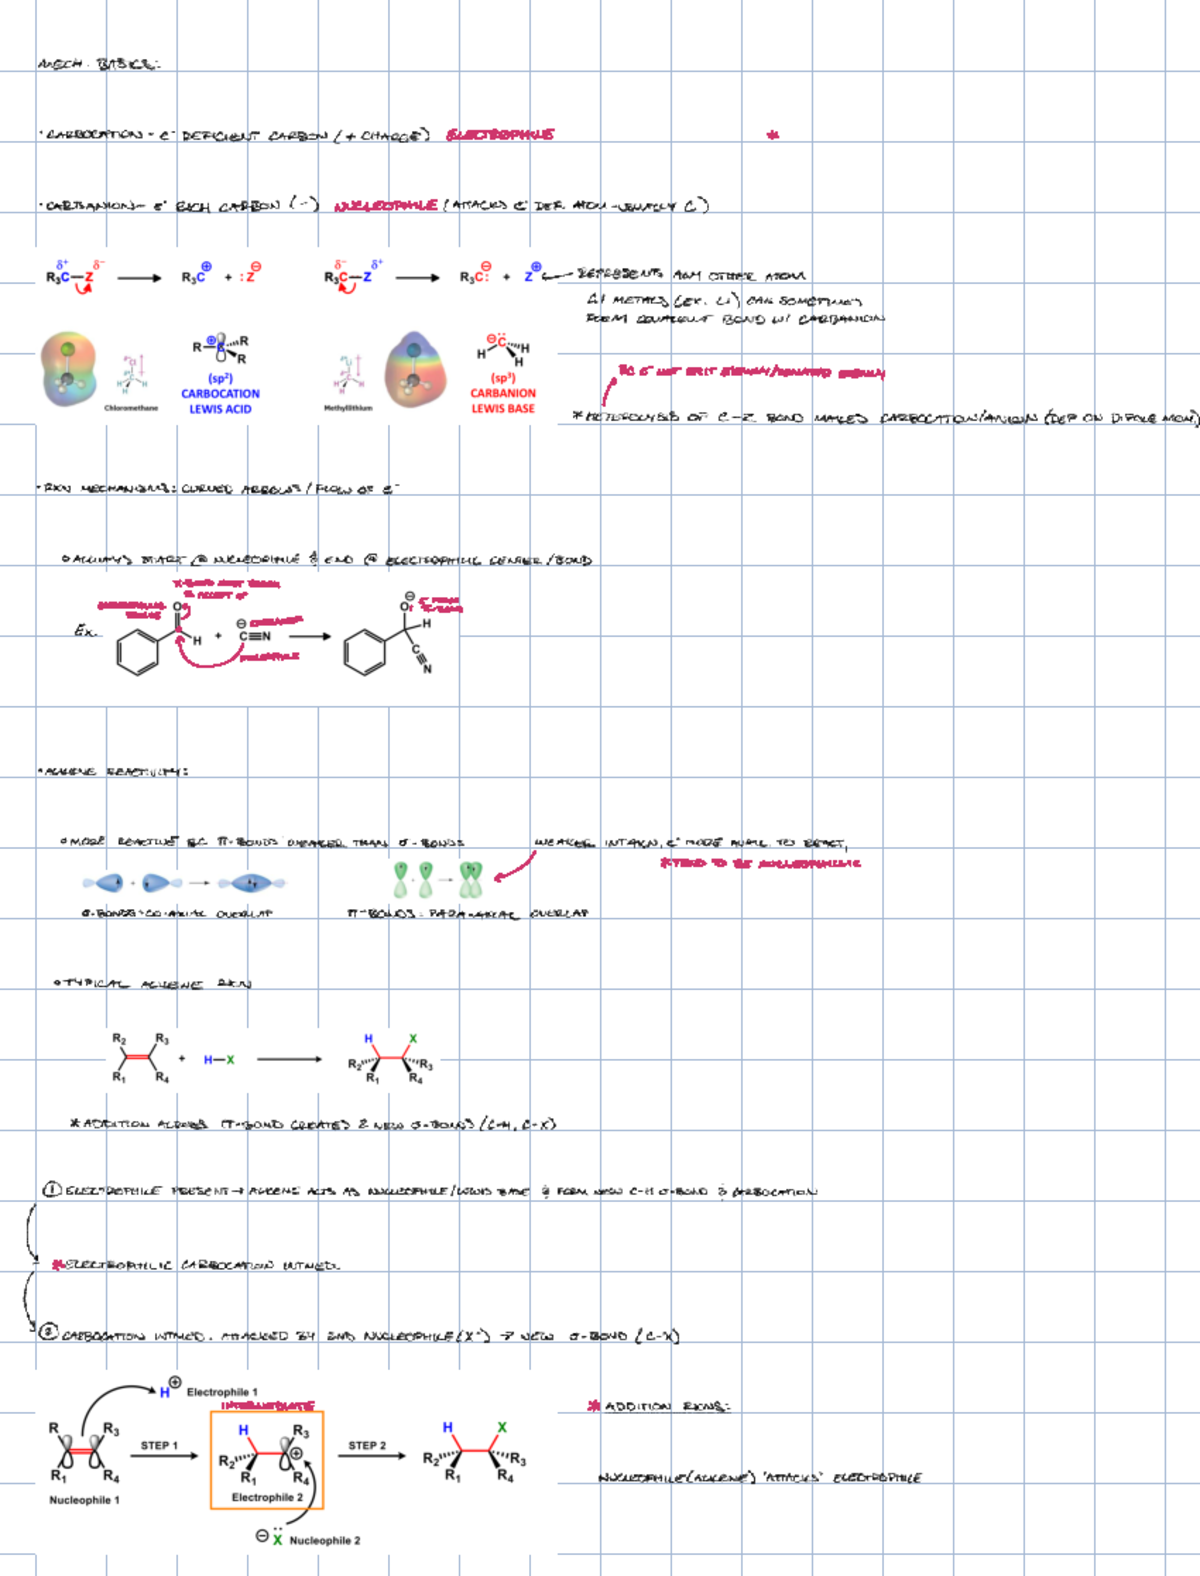 MECH. BASICS:
· CARBOCATION - e⁻ DEFICIENT CARBON (+ CHARGE) ELECTROPHILE *
· CARBANION - e⁻ RICH CARBON (-) NUCLEOPHILE (ATTACKS e⁻ DEF. ATOM - USUALLY C)
δ+ δ- R₃C—Z → R₃C⊕ + :Z⊖ δ- δ+ R₃C—Z → R₃C:⊖ + Z⊕ ← REPRESENTS ANY OTHER ATOM
METALS (EX. Li) CAN SOMETIMES
FORM COVALENT BOND W/ CARBANION
R R R
(sp²)
CARBOCATION
LEWIS ACID
Chloromethane
H H H
(sp³)
CARBANION
LEWIS BASE
Methyllithium
BC e⁻ NOT SPLIT EVENLY
* HETEROLYSIS OF C-Z BOND MAKES CARBOCATION/ANION (DEP ON DIPOLE MOM.)
· RXN MECHANISMS: CURVED ARROWS / FLOW OF e⁻
ALWAYS START @ NUCLEOPHILE & END @ ELECTROPHILIC CENTER/BOND
π-BOND MUST BREAK
TO ACCEPT e⁻
Ex. O H + ⊖ C≡N → O⊖ H C N
NUCLEOPHILE
· ALKENE REACTIVITY:
MORE REACTIVE BC π-BONDS WEAKER THAN σ-BONDS
WEAKER INTAXN, e⁻ MORE AVAIL. TO REACT,
*TEND TO BE NUCLEOPHILIC
σ-BONDS: CO-AXIAL OVERLAP
π-BONDS: PARA-AXIAL OVERLAP
TYPICAL ALKENE RXN
R₂ R₃ R₁ R₄ + H—X → H X R₂ R₃ R₁ R₄
* ADDITION ACROSS π-BOND CREATES 2 NEW σ-BONDS (C-H, C-X)
① ELECTROPHILE PRESENT → ALKENE ACTS AS NUCLEOPHILE/LEWIS BASE & FORM NEW C-H σ-BOND & CARBOCATION
* ELECTROPHILIC CARBOCATION INTMED.
② CARBOCATION INTMED. ATTACKED BY 2ND NUCLEOPHILE (X⁻) → NEW σ-BOND (C-X)
H⊕ Electrophile 1
INTERMEDIATE
R R₃ R₁ R₄
Nucleophile 1
STEP 1
H R₃ R₂ R₁ R₄ ⊕
Electrophile 2
STEP 2
H X R₂ R₃ R₁ R₄
⊖ :X Nucleophile 2
* ADDITION RXNS:
NUCLEOPHILE (ALKENE) 'ATTACKS' ELECTROPHILE